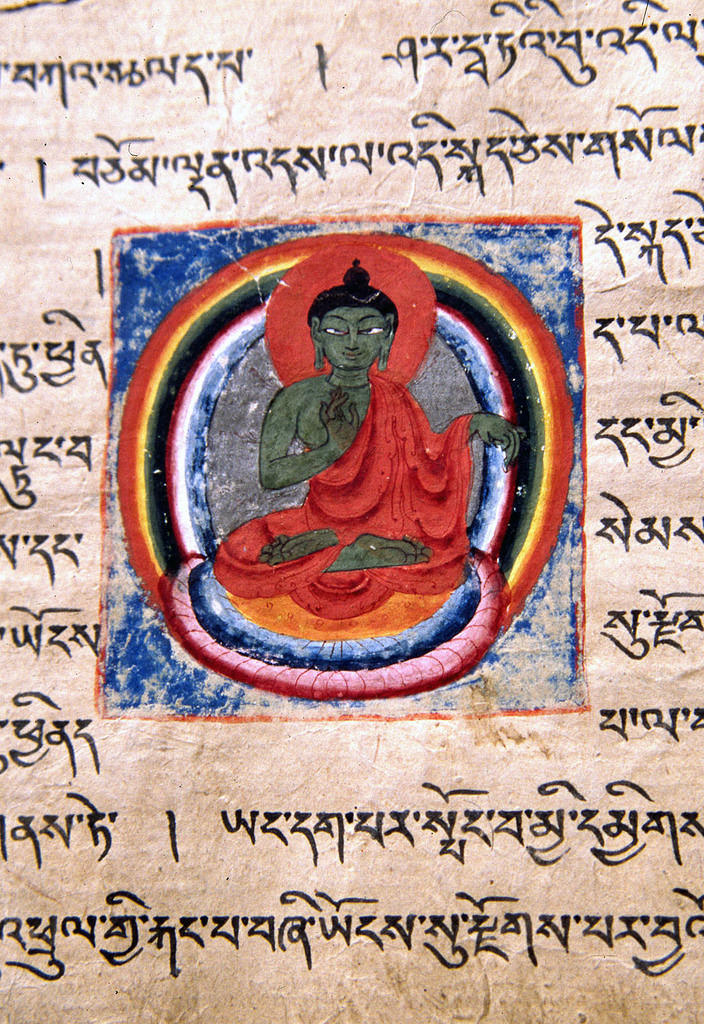 བཀའ་སྩལ་ད་པ་ ། ཤ་ར་དྭ་ཏིའི་བུ་འདི་ལ
། བཅོམ་ལྡན་འདས་ལ་འདི་སྐད་ཅེས་གསོལ
། དེ་སྐད་ཅེ
ཏུ་ཕྱིན ད་པ་ལ
ལྟུང་བ དང་མྱི
ས་དང་ སེམས
ཡོངས སུ་རྫོག
ཕྱིནད པ་ལ་
གནས་ཏེ་ ། ཡང་དག་པར་སྤོང་བ་མྱི་དམྱིགས
འཕྲུལ་གྱི་རྐང་པ་བཞི་ཡོངས་སུ་རྫོགས་པར་བྱའོ